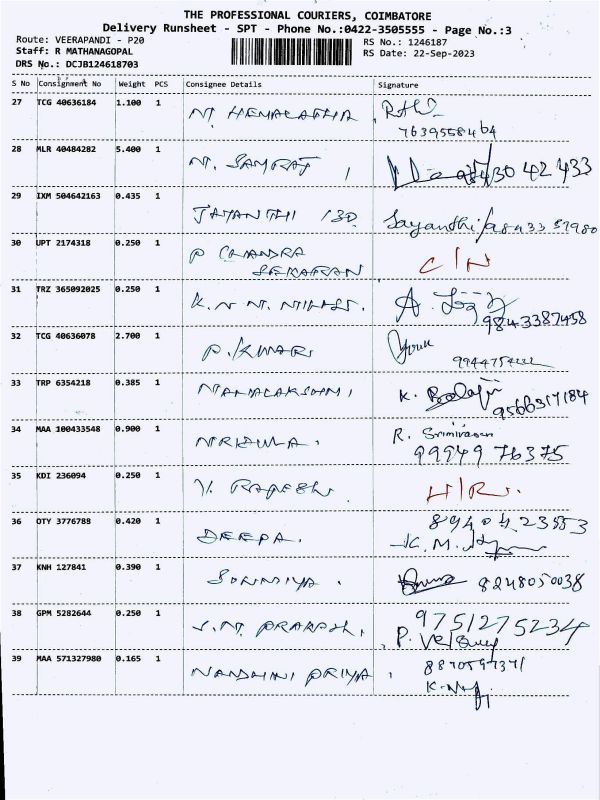 THE PROFESSIONAL COURIERS, COIMBATORE
Delivery Runsheet - SPT - Phone No.:0422-3505555 - Page No.:3
Route: VEERAPANDI - P20
RS No.: 1246187
Staff: R MATHANAGOPAL
RS Date: 22-Sep-2023
DRS No.: DCJB124618703
S No Consignment No Weight PCS Consignee Details Signature
27 TCG 40636184 1.100 1 N HEMALATHA
28 MLR 40484282 5.400 1 N. SAMRAJ
29 IXM 504642163 0.435 1 JAYANTHI 130 Jayanthi
30 UPT 2174318 0.250 1 P CHANDRA C/N
SEKARAN
31 TRZ 365092025 0.250 1
9843387458
32 TCG 40636078 2.700 1 P. KUMAR
33 TRP 6354218 0.385 1 K. Balaji
9566317184
34 MAA 100433548 0.900 1 R. Srinivasan
99949 76375
35 KDI 236094 0.250 1 V. RAJESH H/R.
36 OTY 3776788 0.420 1 DEEPA. 8940423553
K. M.
37 KNH 127841 0.390 1 SOWMIYA. 8248050038
38 GPM 5282644 0.250 1 PRAKASH. 9751275234
P. Velsamy
39 MAA 571327980 0.165 1 NANDHINI PRIYA